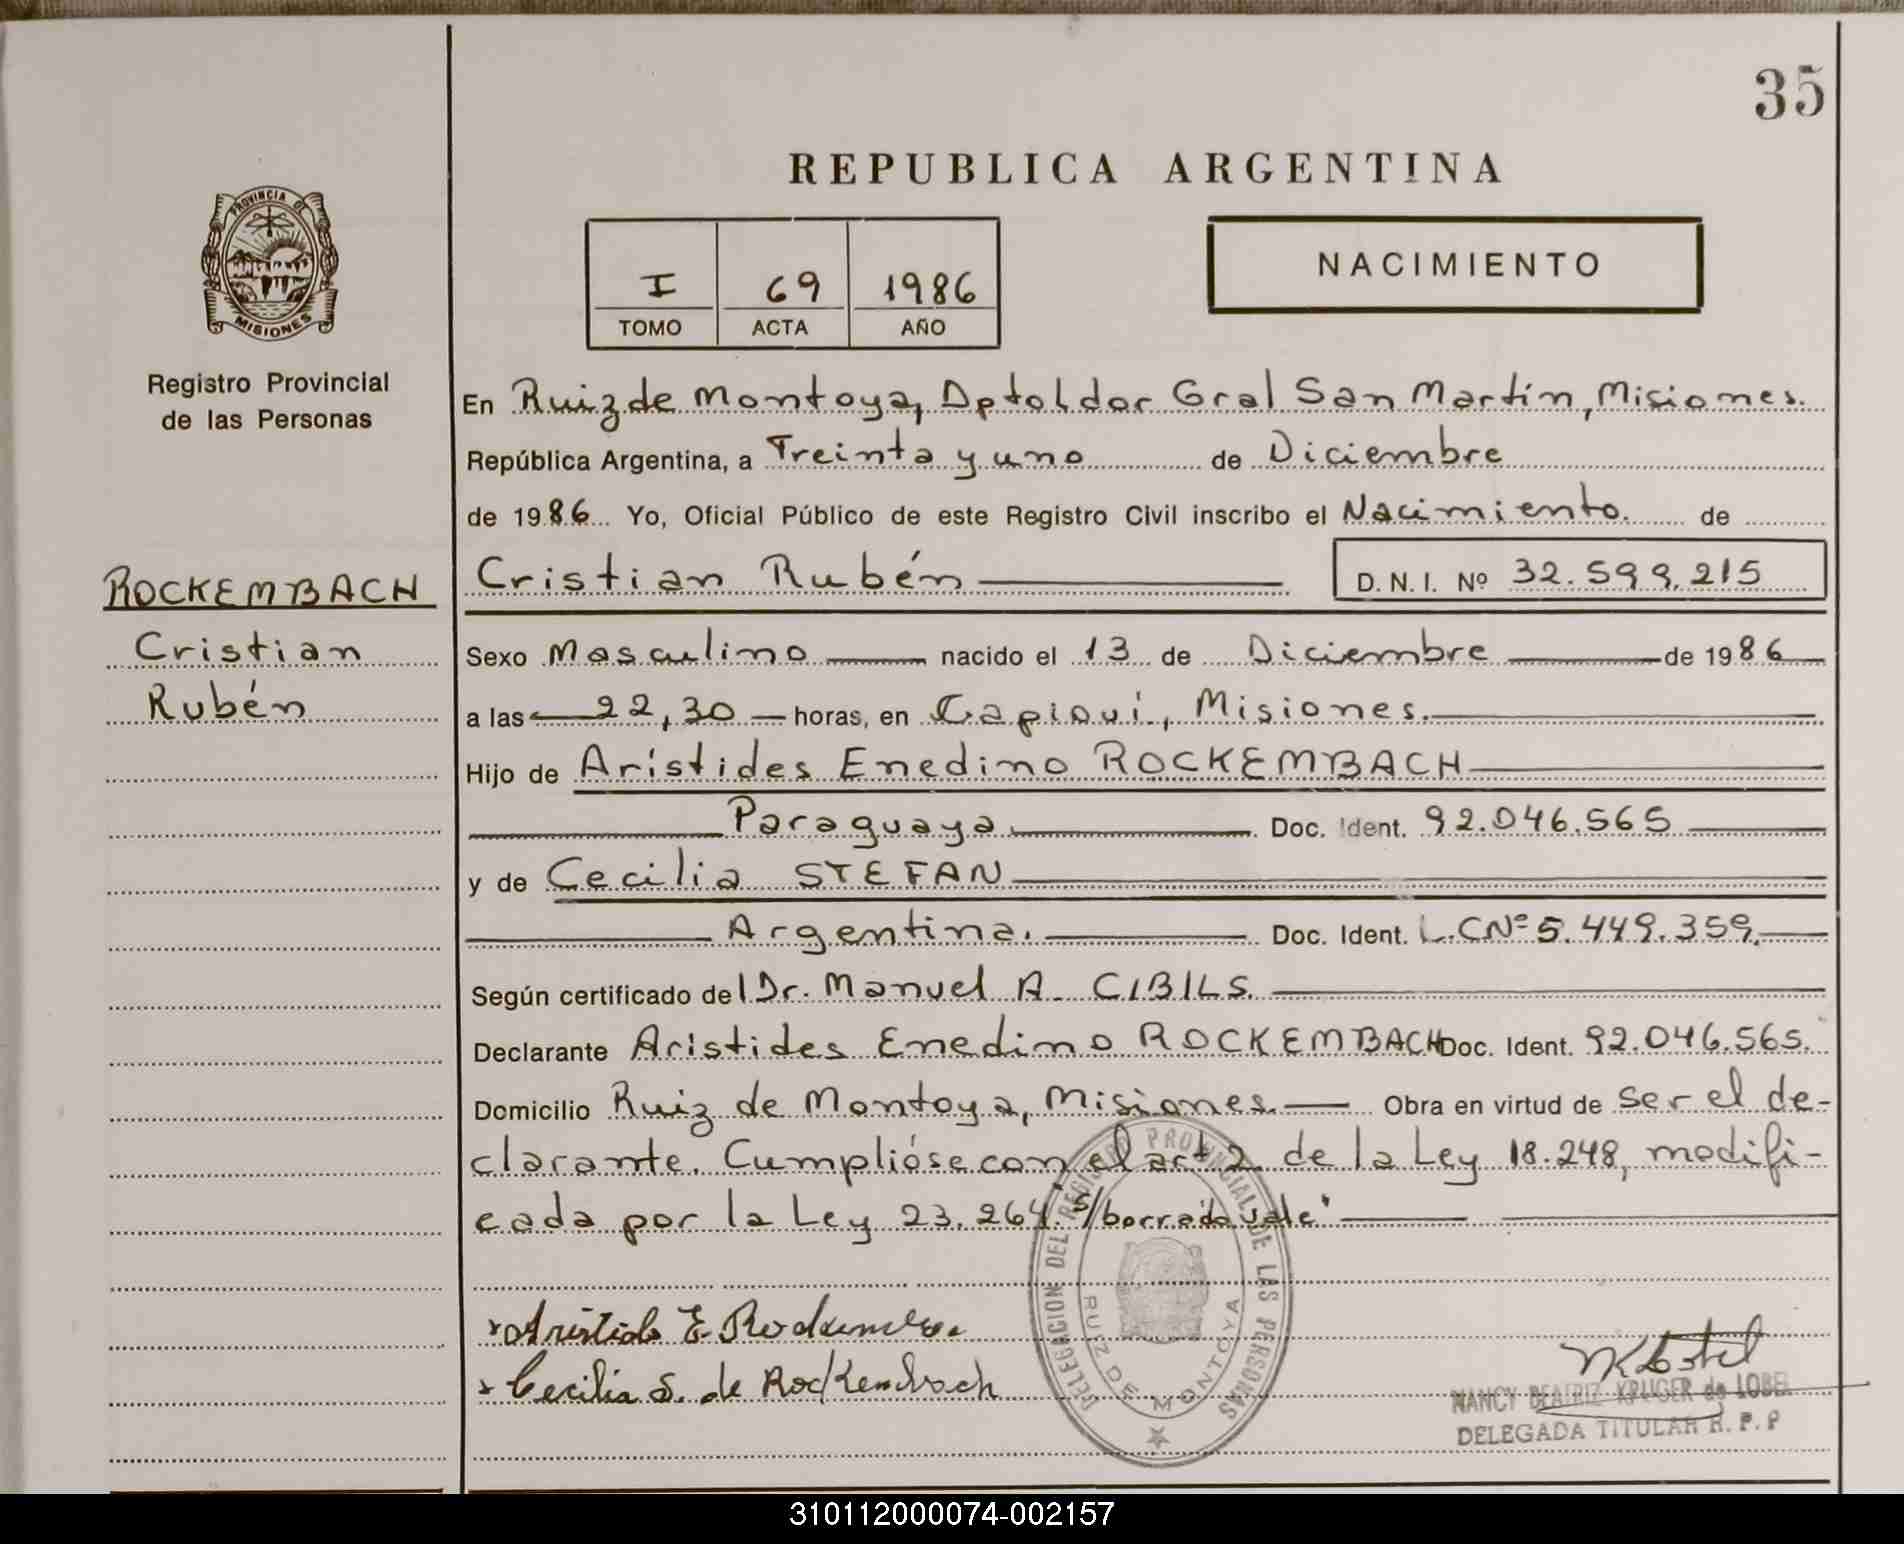 35
REPUBLICA ARGENTINA
PROVINCIA DE
MISIONES
I 69 1986
TOMO ACTA AÑO
NACIMIENTO
Registro Provincial
de las Personas
En Ruiz de Montoya, Dpto Ldor Gral San Martín, Misiones.
República Argentina, a Treinta y uno de Diciembre
de 1986 Yo, Oficial Público de este Registro Civil inscribo el Nacimiento. de
Cristian Rubén D.N.I. Nº 32.599.215
ROCKEMBACH
Cristian
Rubén
Sexo Masculino nacido el 13 de Diciembre de 1986
a las 22,30 horas, en Capioví, Misiones.
Hijo de Arístides Enedino ROCKEMBACH
Paraguaya Doc. Ident. 92.046.565
y de Cecilia STEFAN
Argentina. Doc. Ident. L.C Nº 5.449.359.
Según certificado del Dr. Manuel A. CIBILS.
Declarante Arístides Enedino ROCKEMBACH Doc. Ident. 92.046.565.
Domicilio Ruiz de Montoya, Misiones. Obra en virtud de ser el de-
clarante. Cumplióse con el art 2 de la Ley 18.248, modifi-
cada por la Ley 23.264. "S/borrado vale"
DELEGACION DEL REGISTRO PROVINCIAL DE LAS PERSONAS
RUIZ DE MONTOYA
Cecilia S. de Rockembach
NANCY BEATRIZ KRUGER de LOBEL
DELEGADA TITULAR R. P. P
310112000074-002157